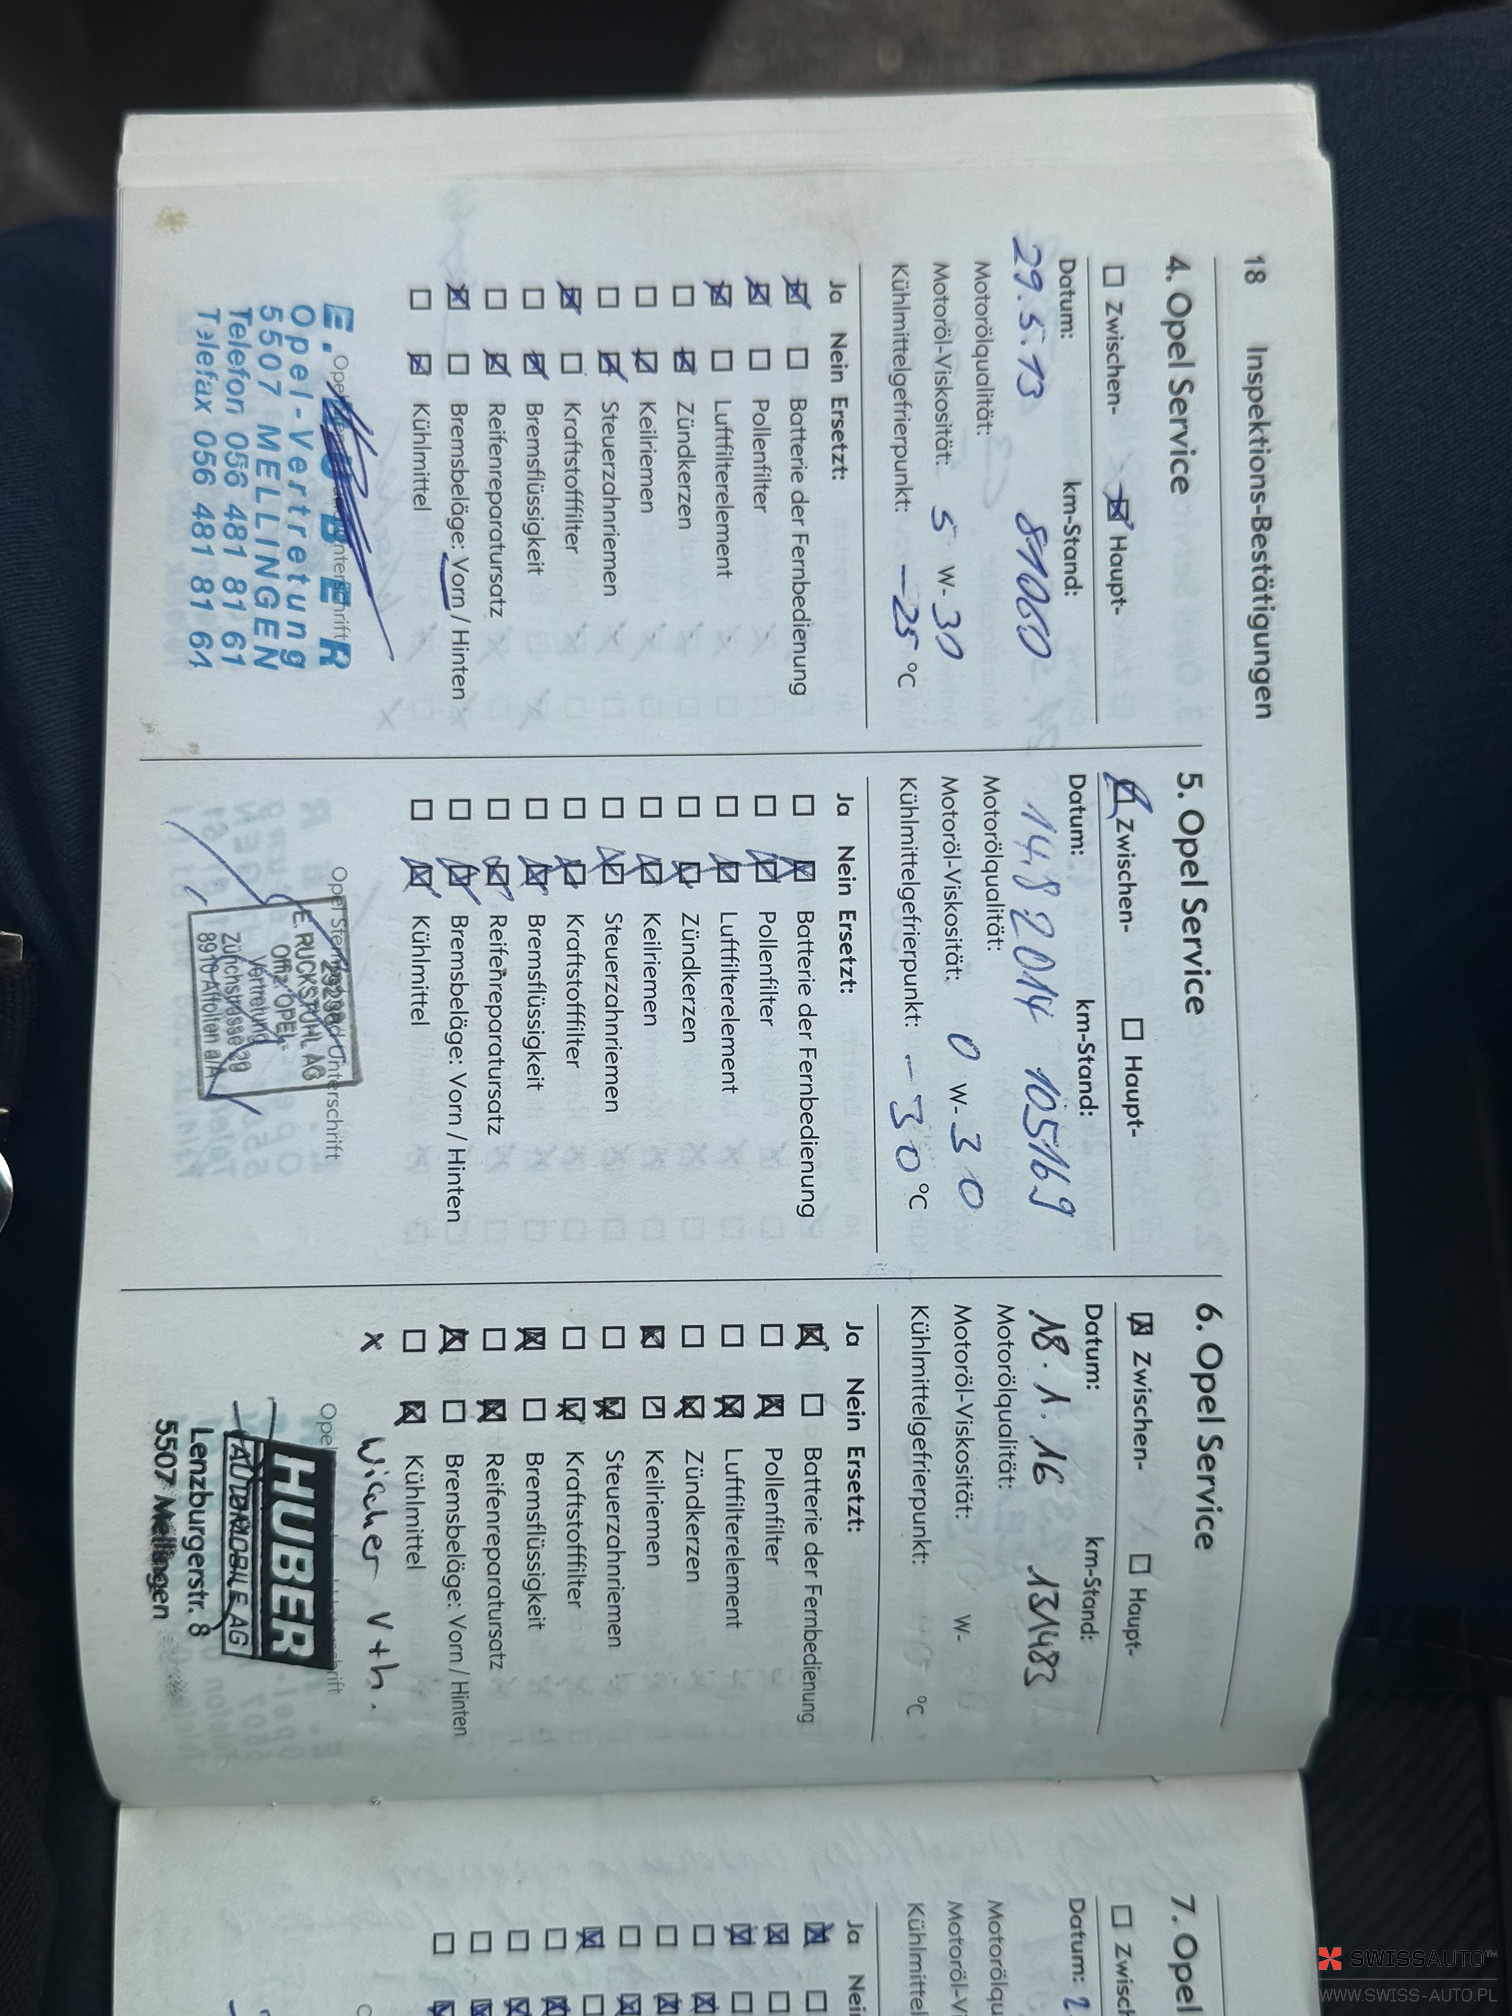 18 Inspektions-Bestätigungen
4. Opel Service
Zwischen- Haupt-
Datum: km-Stand:
29.5.13 81060
Motorölqualität:
Motoröl-Viskosität: 5 W-30
Kühlmittelgefrierpunkt: -25 °C
Ja Nein Ersetzt:
Batterie der Fernbedienung
Pollenfilter
Luftfilterelement
Zündkerzen
Keilriemen
Steuerzahnriemen
Kraftstofffilter
Bremsflüssigkeit
Reifenreparatursatz
Bremsbeläge: Vorn / Hinten
Kühlmittel
E. HUBER
Opel-Vertretung
5507 MELLINGEN
Telefon 056 481 81 61
Telefax 056 481 81 64
5. Opel Service
Zwischen- Haupt-
Datum: km-Stand:
14.8 2014 105169
Motorölqualität:
Motoröl-Viskosität: 0 W-30
Kühlmittelgefrierpunkt: -30 °C
Ja Nein Ersetzt:
Batterie der Fernbedienung
Pollenfilter
Luftfilterelement
Zündkerzen
Keilriemen
Steuerzahnriemen
Kraftstofffilter
Bremsflüssigkeit
Reifenreparatursatz
Bremsbeläge: Vorn / Hinten
Kühlmittel
Opel Stempel und Unterschrift
E. RUCKSTUHL AG
Offiz. OPEL-
Vertretung
Zürichstrasse
8910 Affoltern a/A
6. Opel Service
Zwischen- Haupt-
Datum: km-Stand:
18.1.16 131483
Motorölqualität:
Motoröl-Viskosität: W-
Kühlmittelgefrierpunkt: °C
Ja Nein Ersetzt:
Batterie der Fernbedienung
Pollenfilter
Luftfilterelement
Zündkerzen
Keilriemen
Steuerzahnriemen
Kraftstofffilter
Bremsflüssigkeit
Reifenreparatursatz
Bremsbeläge: Vorn / Hinten
Kühlmittel
x Wischer v+h.
HUBER
AUTOMOBILE AG
Lenzburgerstr. 8
5507 Mellingen
7. Opel
Zwisch
Datum: 2
Motorölqu
Motoröl-Vi
Kühlmittel
Ja Nein
SWISSAUTO
WWW.SWISS-AUTO.PL